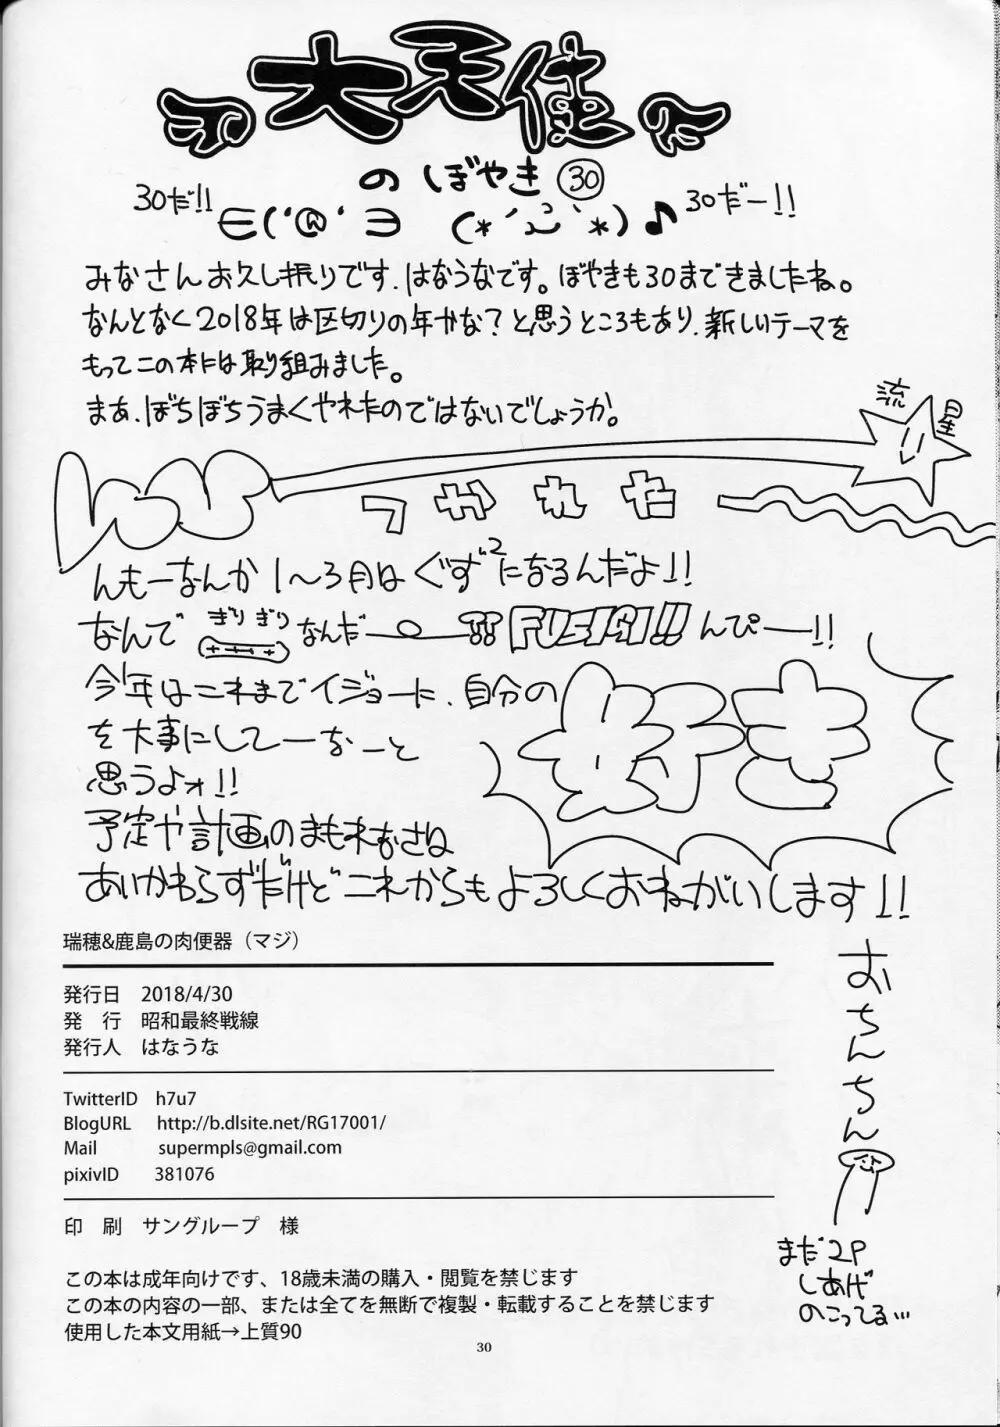 大天使
のぼやき㉚
30だ!! ∈('@'∋ (*´ڡ`*)♪ 30だー!!
みなさんお久し振りです、はなうなです。ぼやきも30まできましたね。
なんとなく2018年は区切りの年かな?と思うところもあり、新しいテーマを
もってこの本には取り組みました。
まあ、ぼちぼちうまくやれたのではないでしょうか。
流星
つかれた
んもーなんか1〜3月はぐず²になるんだよ!!
なんでぎりぎりなんだー!! FUSIAI!! んぴー!!
今年はこれまでイジョーに、自分の好き
を大事にしてーなーと
思うよォ!!
予定や計画のまも
あいかわらずだけどこれからもよろしくおねがいします!!
おちんちん
まだ2P
しあげ
のこってる…
瑞穂&鹿島の肉便器(マジ)
発行日 2018/4/30
発 行 昭和最終戦線
発行人 はなうな
TwitterID h7u7
BlogURL http://b.dlsite.net/RG17001/
Mail supermpls@gmail.com
pixivID 381076
印 刷 サングループ 様
この本は成年向けです、18歳未満の購入・閲覧を禁じます
この本の内容の一部、または全てを無断で複製・転載することを禁じます
使用した本文用紙→上質90
30